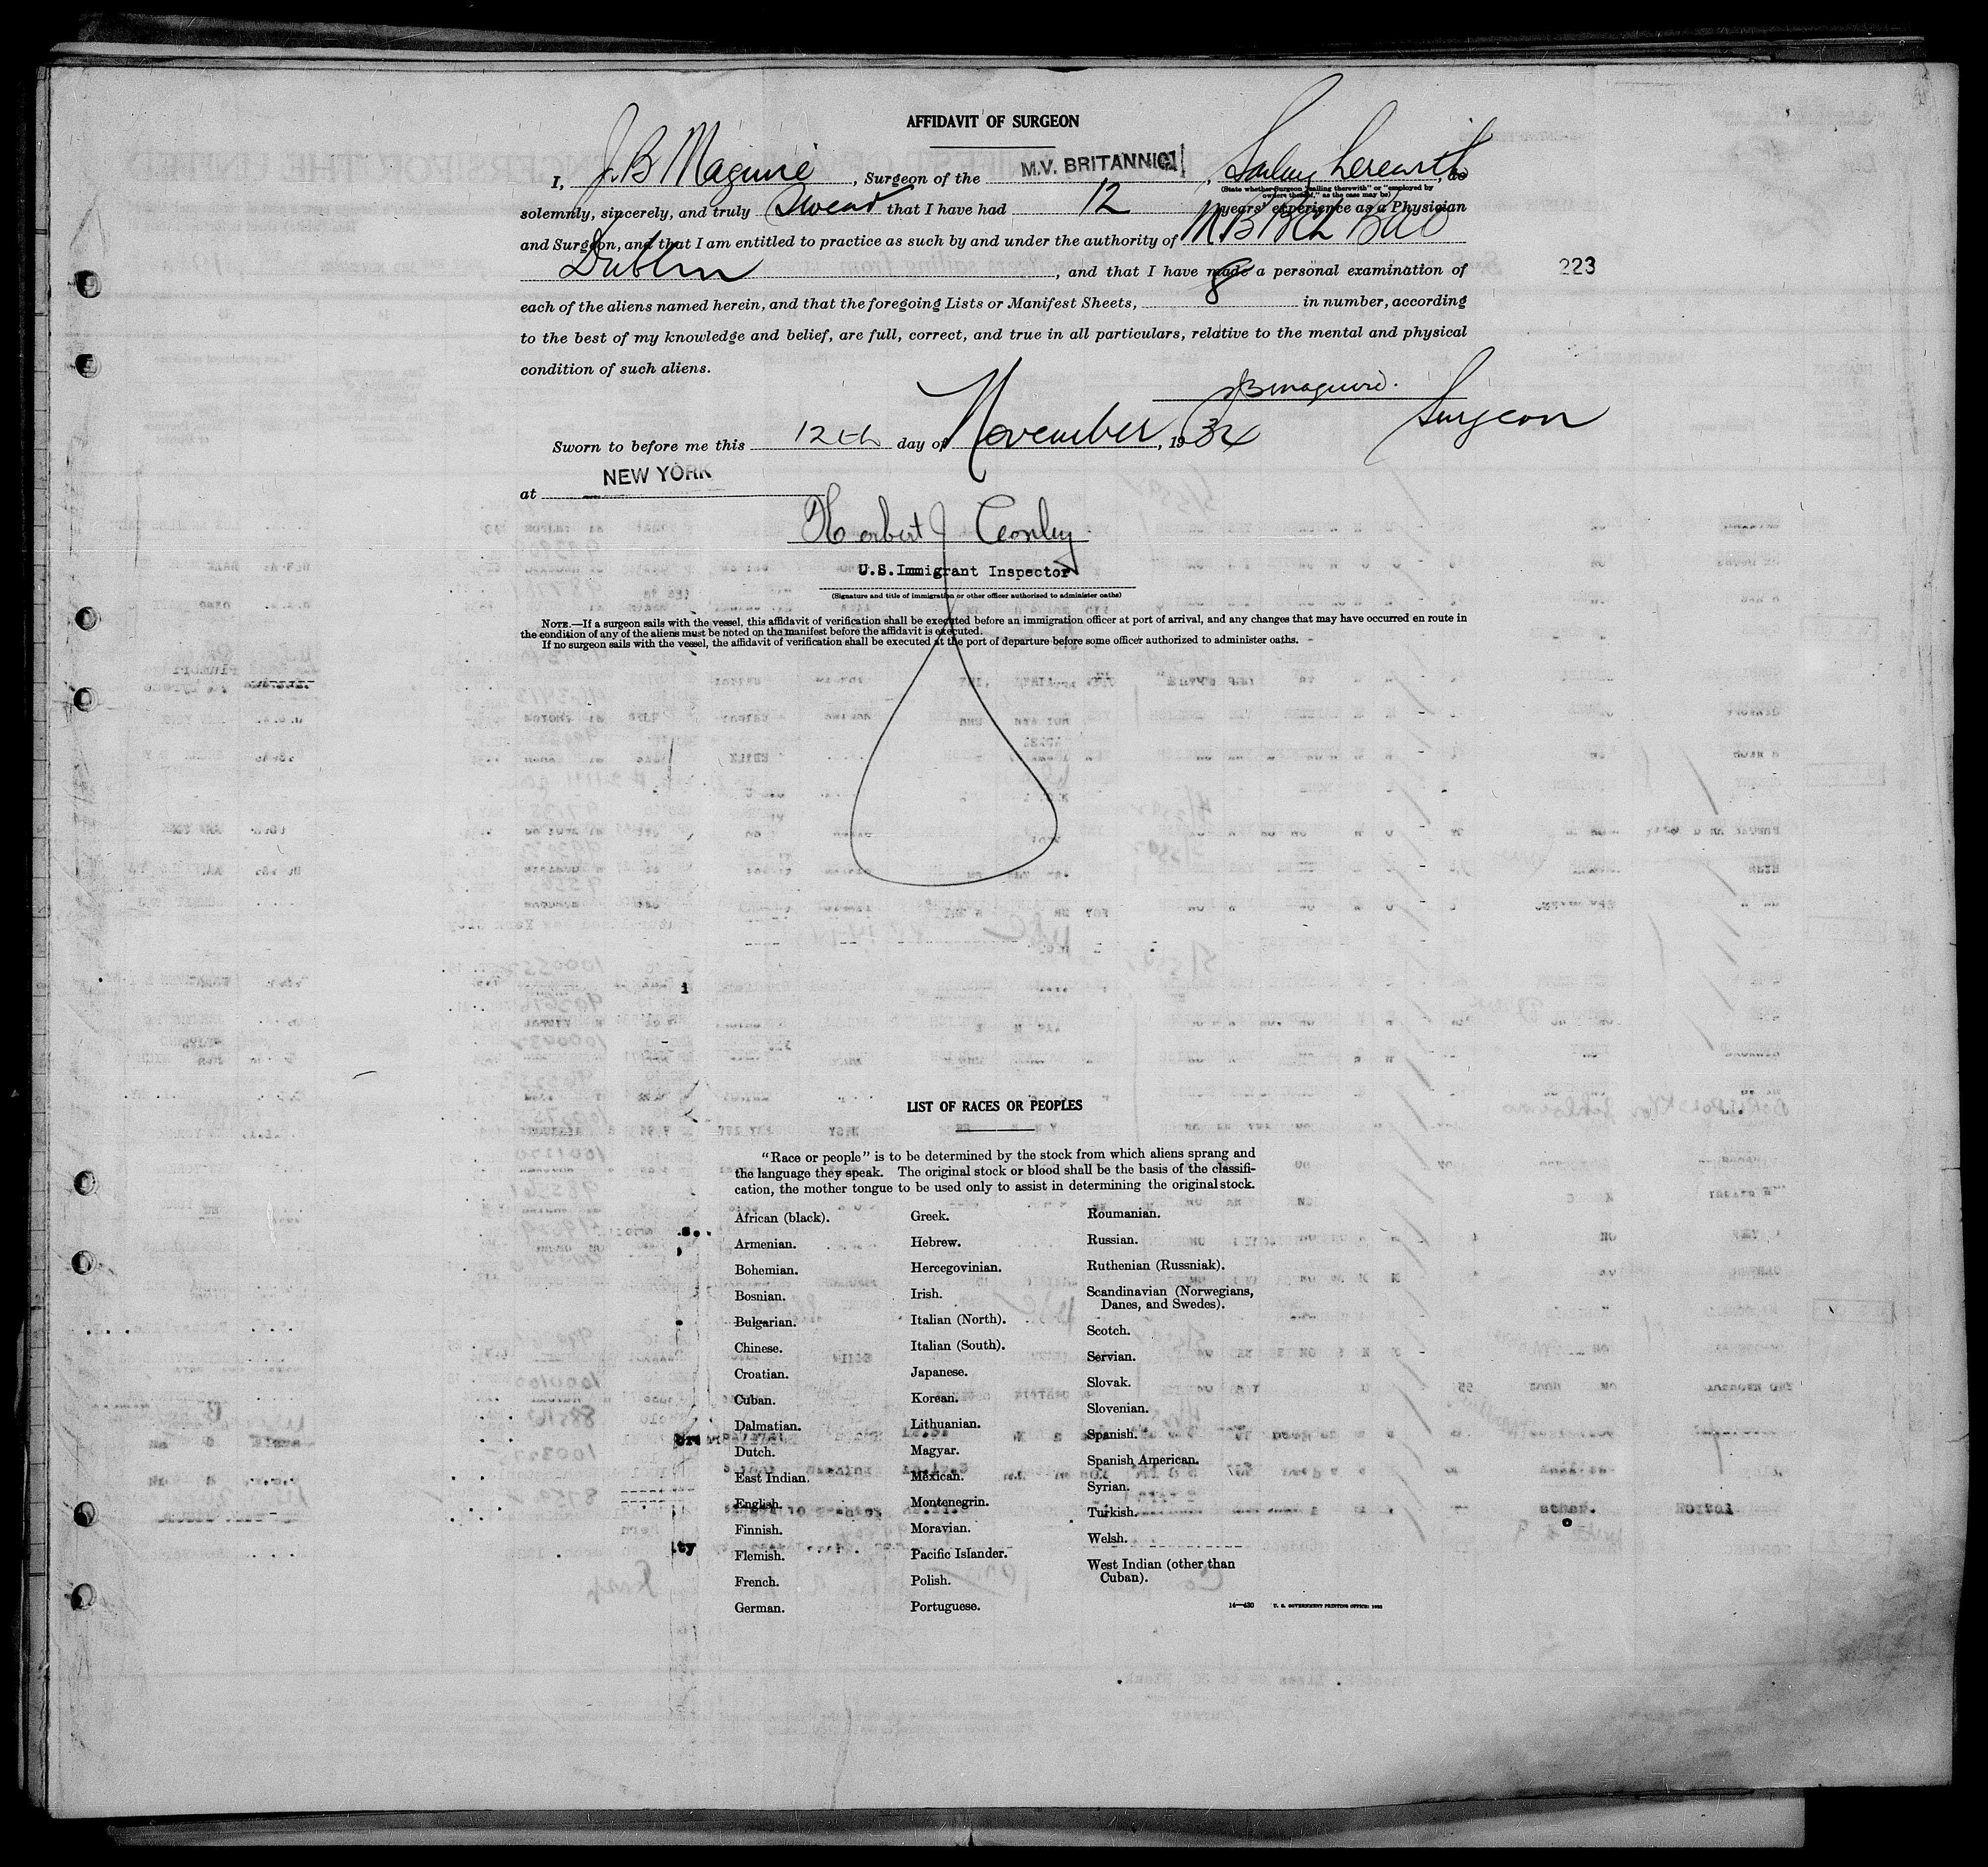 AFFIDAVIT OF SURGEON
I, J. B Maguire, Surgeon of the M.V. BRITANNIC, Sailing herewith, do
(State whether Surgeon "sailing therewith" or "employed by owners thereof," as the case may be)
solemnly, sincerely, and truly Swear that I have had 12 years' experience as a Physician
and Surgeon, and that I am entitled to practice as such by and under the authority of M.B BCh BAO
Dublin, and that I have made a personal examination of
223
each of the aliens named herein, and that the foregoing Lists or Manifest Sheets, 8 in number, according
to the best of my knowledge and belief, are full, correct, and true in all particulars, relative to the mental and physical
condition of such aliens.
JBMaguire.
Surgeon
Sworn to before me this 12th day of November, 1934
at NEW YORK
Herbert J Conley
U.S.Immigrant Inspector
(Signature and title of immigration or other officer authorized to administer oaths)
NOTE.—If a surgeon sails with the vessel, this affidavit of verification shall be executed before an immigration officer at port of arrival, and any changes that may have occurred en route in
the condition of any of the aliens must be noted on the manifest before the affidavit is executed.
If no surgeon sails with the vessel, the affidavit of verification shall be executed at the port of departure before some officer authorized to administer oaths.
LIST OF RACES OR PEOPLES
"Race or people" is to be determined by the stock from which aliens sprang and
the language they speak. The original stock or blood shall be the basis of the classifi-
cation, the mother tongue to be used only to assist in determining the original stock.
African (black).
Armenian.
Bohemian.
Bosnian.
Bulgarian.
Chinese.
Croatian.
Cuban.
Dalmatian.
Dutch.
East Indian.
English.
Finnish.
Flemish.
French.
German.
Greek.
Hebrew.
Hercegovinian.
Irish.
Italian (North).
Italian (South).
Japanese.
Korean.
Lithuanian.
Magyar.
Mexican.
Montenegrin.
Moravian.
Pacific Islander.
Polish.
Portuguese.
Roumanian.
Russian.
Ruthenian (Russniak).
Scandinavian (Norwegians,
Danes, and Swedes).
Scotch.
Servian.
Slovak.
Slovenian.
Spanish.
Spanish American.
Syrian.
Turkish.
Welsh.
West Indian (other than
Cuban).
14—430 U. S. GOVERNMENT PRINTING OFFICE: